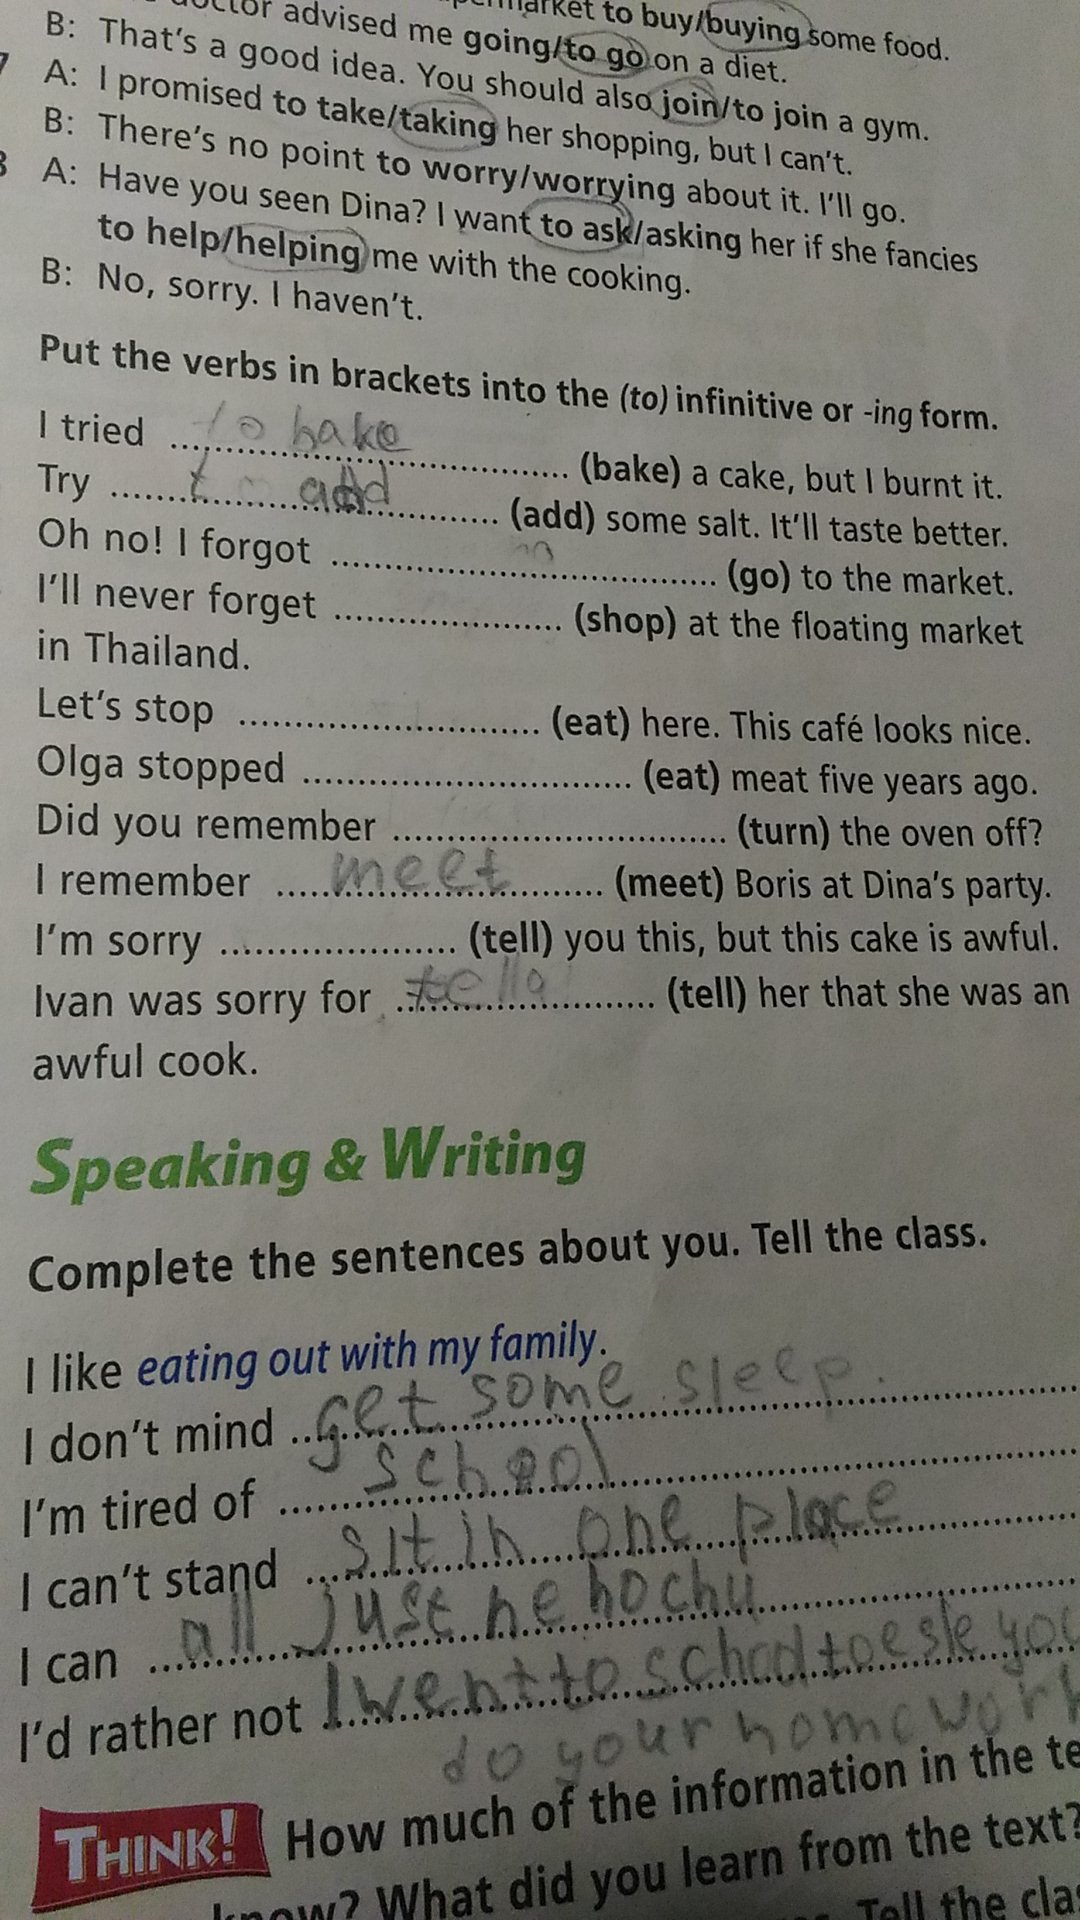 market to buy/buying some food.
doctor advised me going/to go on a diet.
B: That's a good idea. You should also join/to join a gym.
7 A: I promised to take/taking her shopping, but I can't.
B: There's no point to worry/worrying about it. I'll go.
8 A: Have you seen Dina? I want to ask/asking her if she fancies
to help/helping me with the cooking.
B: No, sorry. I haven't.
Put the verbs in brackets into the (to) infinitive or -ing form.
I tried to bake (bake) a cake, but I burnt it.
Try to add (add) some salt. It'll taste better.
Oh no! I forgot .................... (go) to the market.
I'll never forget .................... (shop) at the floating market
in Thailand.
Let's stop .................... (eat) here. This café looks nice.
Olga stopped .................... (eat) meat five years ago.
Did you remember .................... (turn) the oven off?
I remember meet (meet) Boris at Dina's party.
I'm sorry .................... (tell) you this, but this cake is awful.
Ivan was sorry for .................... (tell) her that she was an
awful cook.
Speaking & Writing
Complete the sentences about you. Tell the class.
I like eating out with my family.
I don't mind get some sleep.
I'm tired of school
I can't stand sit in one place
I can all just ne hochu
I'd rather not I went to school to
do your homework
THINK! How much of the information in the
know? What did you learn from the text?
Tell the